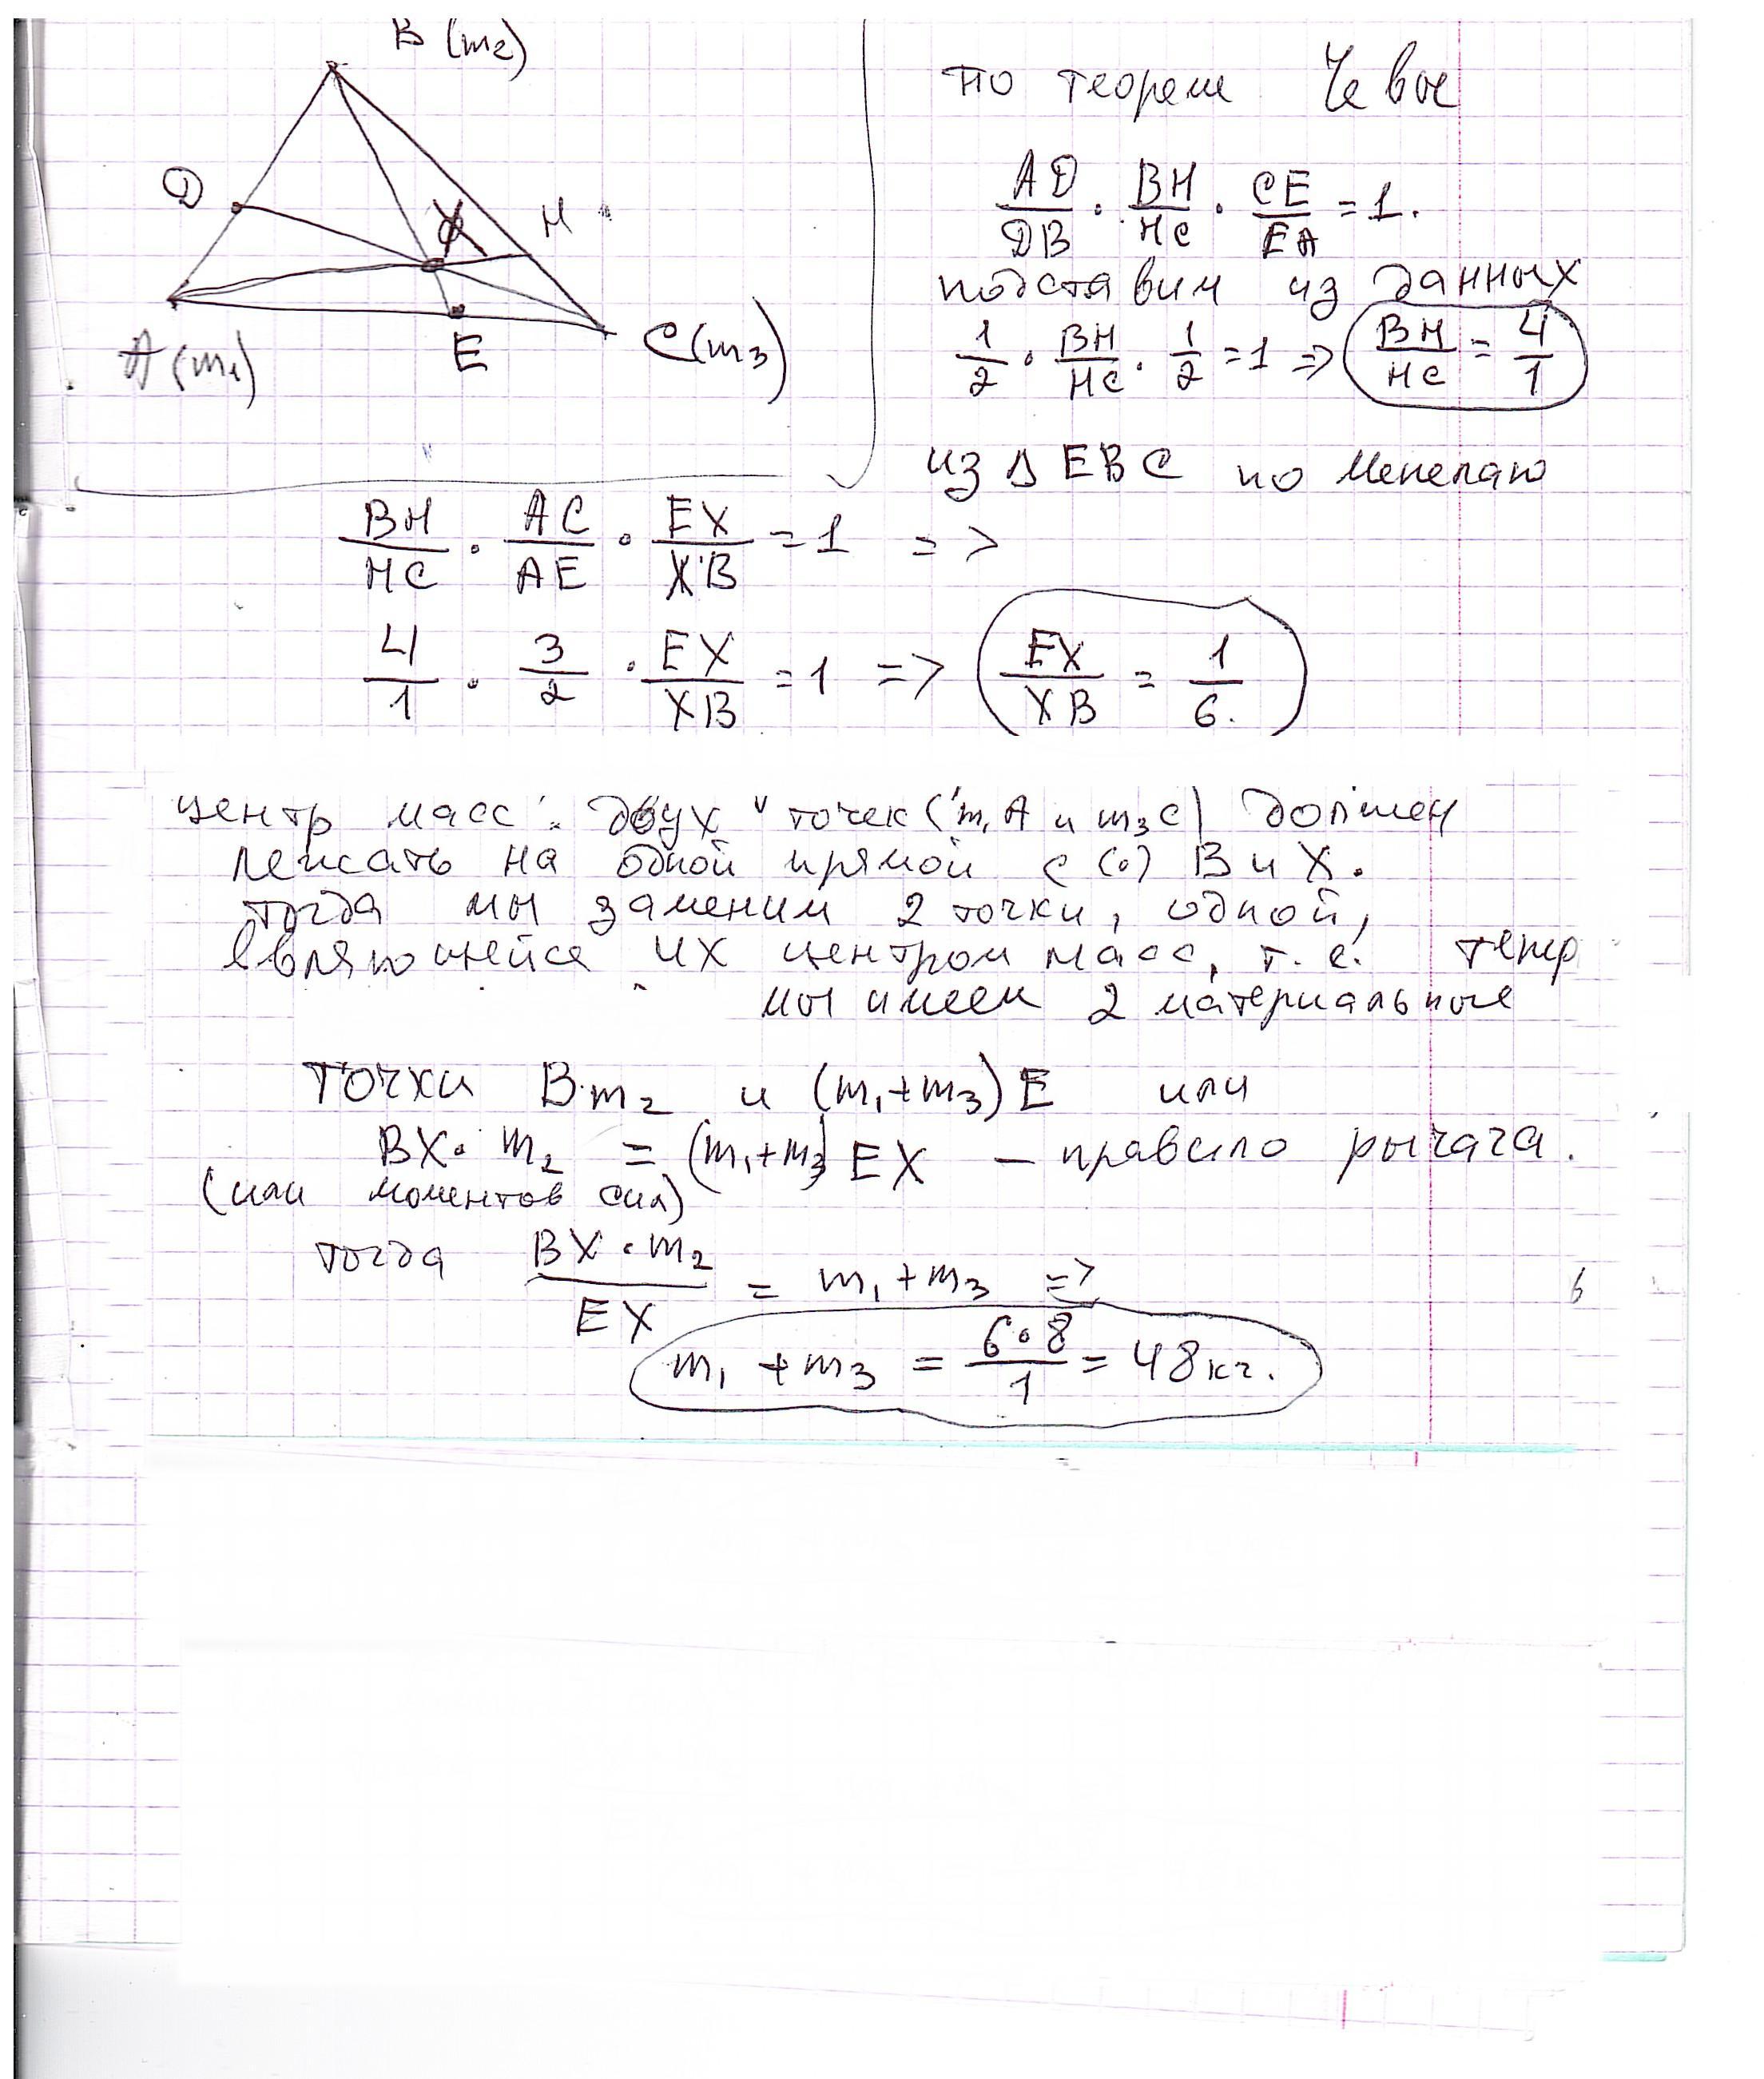 B (m2)
D
X
H
A (m1)
E
C (m3)
по теореме Чевы
AD/DB · BH/HC · CE/EA = 1.
подставим из данных
1/2 · BH/HC · 1/2 = 1 => BH/HC = 4/1
из Δ EBC по Менелаю
BH/HC · AC/AE · EX/XB = 1 =>
4/1 · 3/2 · EX/XB = 1 => EX/XB = 1/6.
центр масс двух точек (m1A и m3C) должен
лежать на одной прямой с (·) B и X.
тогда мы заменим 2 точки, одной,
являющейся их центром масс, т. е. тепер
мы имеем 2 материальные
точки B m2 и (m1+m3) E или
BX · m2 = (m1+m3) EX – правило рычага.
(или моментов сил)
тогда BX · m2 / EX = m1 + m3 =>
m1 + m3 = 6·8/1 = 48 кг.